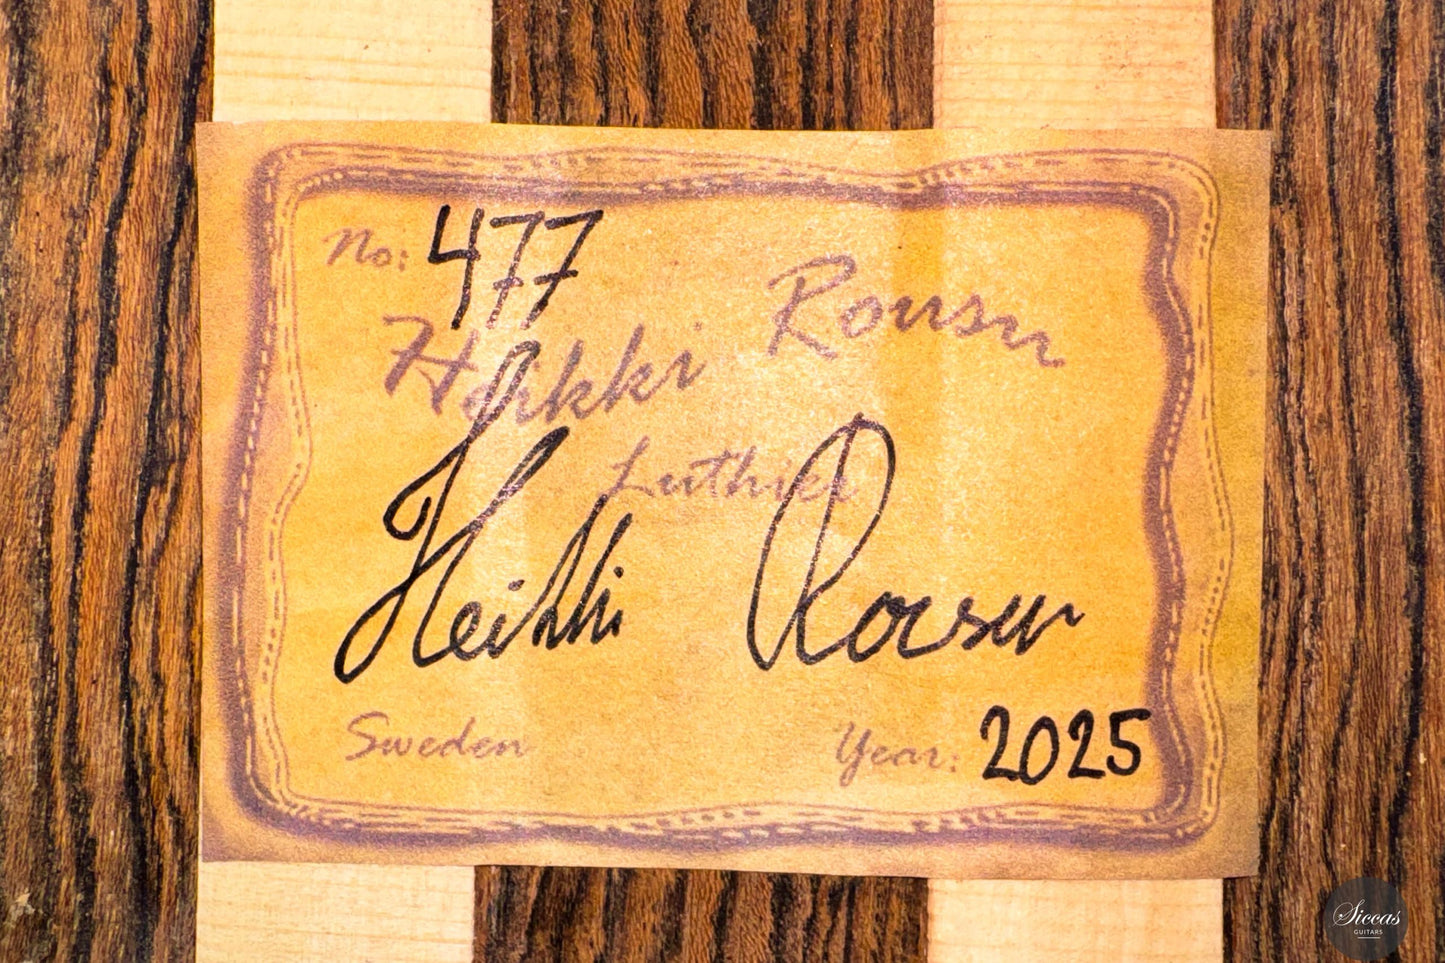 No: 477
Heikki Rousu
Luthier
Heikki Rousu
Sweden
Year: 2025
Siccas
GUITARS